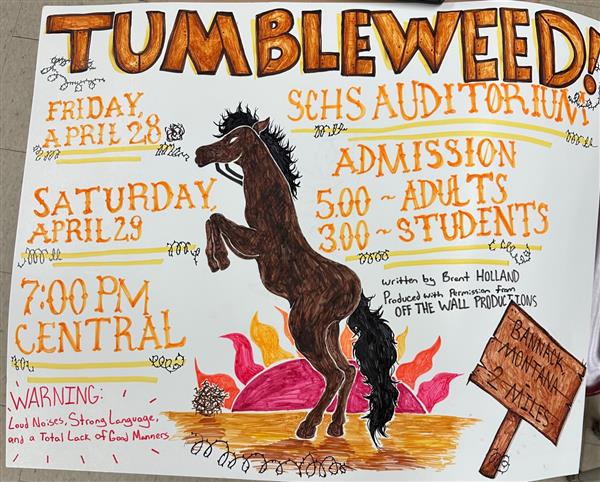 TUMBLEWEED!
FRIDAY,
APRIL 28
SATURDAY,
APRIL 29
7:00 PM
CENTRAL
WARNING:
Loud Noises, Strong Language,
and a Total Lack of Good Manners
SCHS AUDITORIUM
ADMISSION
5.00 ~ ADULTS
3.00 ~ STUDENTS
written by Brent HOLLAND
Produced with Permission from
OFF THE WALL PRODUCTIONS
BANNACK,
MONTANA
2 MILES